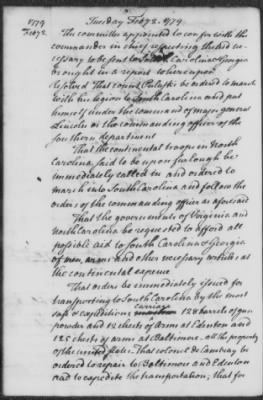 1779 Tuesday Feby 2. 1779
Feby 2.
The committee appointed to confer with the
commander in chief respecting the aid ne-
cessary to be sent to South Carolina & Georgia
brought in a report whereupon
Resolved That count Pulaski be ordered to march
with his legion to South Carolina and put
himself under the command of major general
Lincoln or the commanding officer of the
southern department
That the continental troops in North
Carolina said to be upon furlough be
immediately called in and ordered to
march into South Carolina and follow the
orders of the commanding officer as aforesaid
That the governments of Virginia and
North Carolina be requested to afford all
possible aid to South Carolina & Georgia
of men, arms and other necessary articles at
the continental expence
That order be immediately issued for
transporting to South Carolina by the most
carriage
safe & expeditious 128 barrels of gun
powder and 12 chests of arms at Edenton and
125 chests of arms at Baltimore, all the property
of the united states. That colonel de Cambray be
ordered to repair to Baltimore and Edenton
and to expedite the transportation; that for